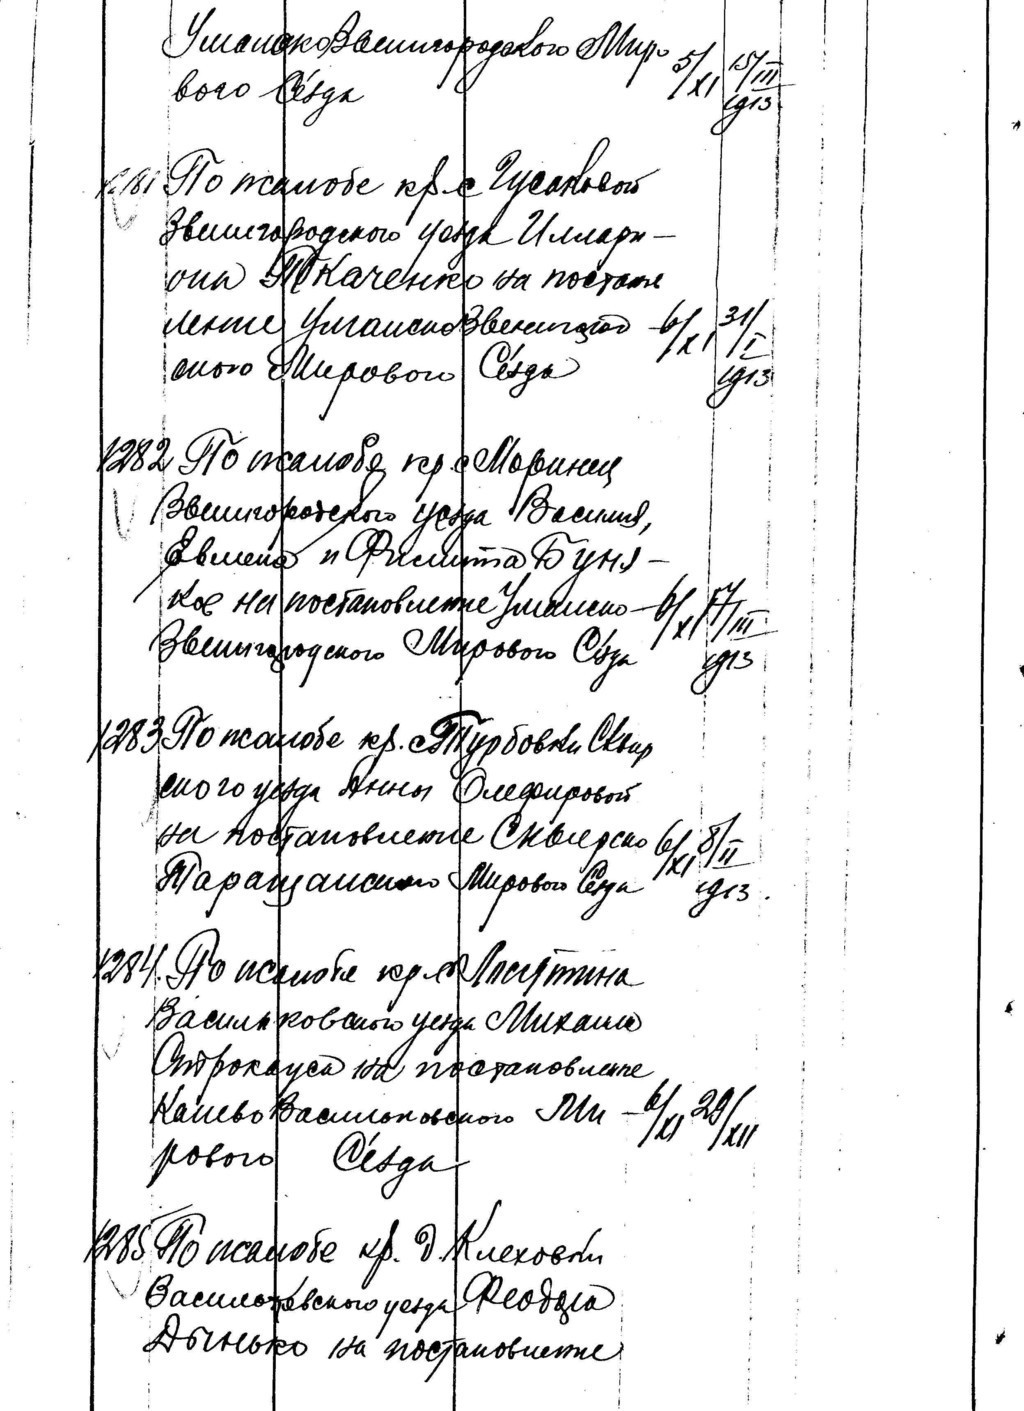 Уманско Звенигородского Миро
вого Сѣзда 5/XI 15/III 1913
1281 По жалобе кр. с Гусаковой
Звенигородского уезда Иллари-
она Ткаченко на постанов
ление Уманско Звенигород 6/XI 31/I
ского Мирового Сѣзда 1913
1282 По жалобе кр. с Моринец
Звенигородского уезда Василия,
Евмена и Филиппа Буня-
ков на постановление Уманско- 6/XI 17/III
Звенигородского Мирового Сѣзда 1913
1283 По жалобе кр. с Турбовки Сквир
ского уезда Анны Олефировой
на постановление Сквирско 6/XI 8/II
Таращанского Мирового Сѣзда 1913.
1284. По жалобе кр. с
Васильковского уезда Михаила
на постановление
Канево Васильковского Ми - 6/XI 29/XII
рового Сѣзда
1285 По жалобе кр. д. Клеховки
Васильковского уезда Феодора
Дынько на постановление